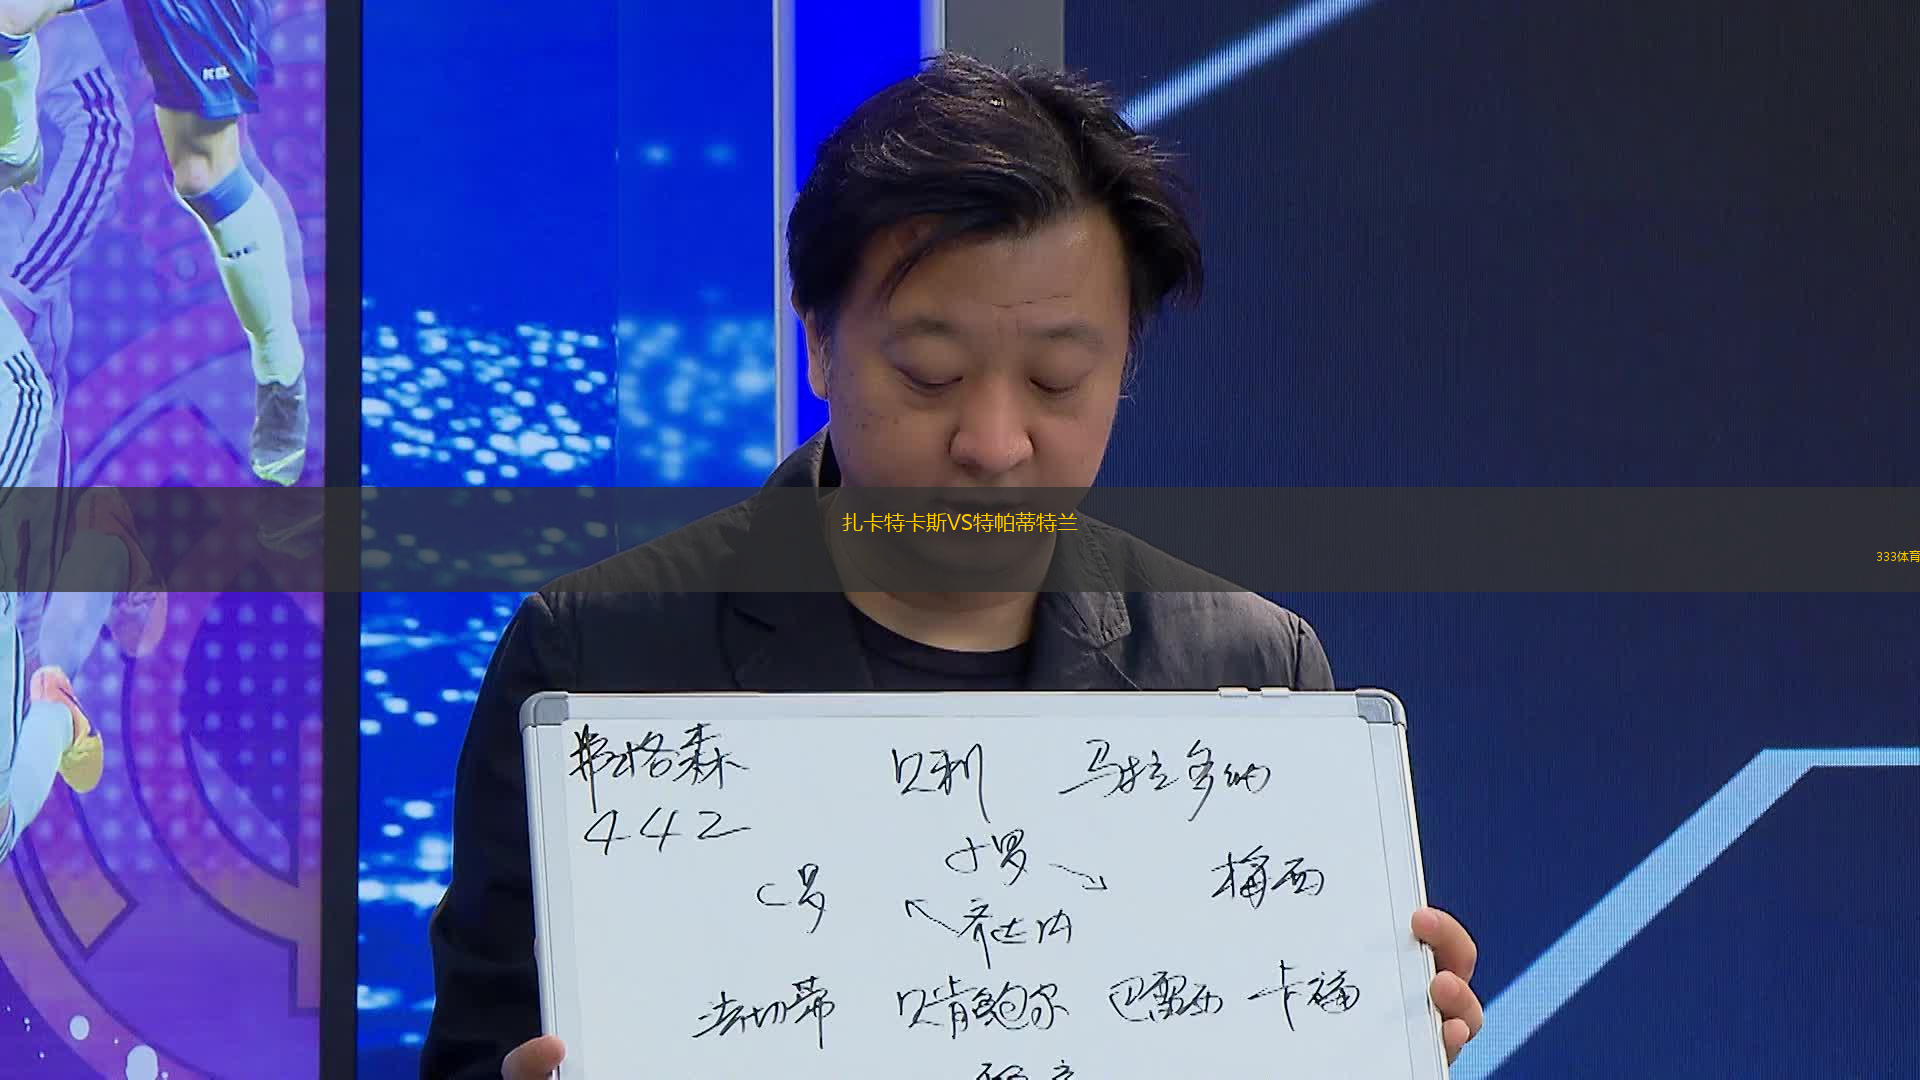 扎卡特卡斯VS特帕蒂特兰
333体育
弗格森 贝利 马拉多纳
442
小罗
C罗 梅西
齐达内
法切蒂 贝肯鲍尔 巴雷西 卡福